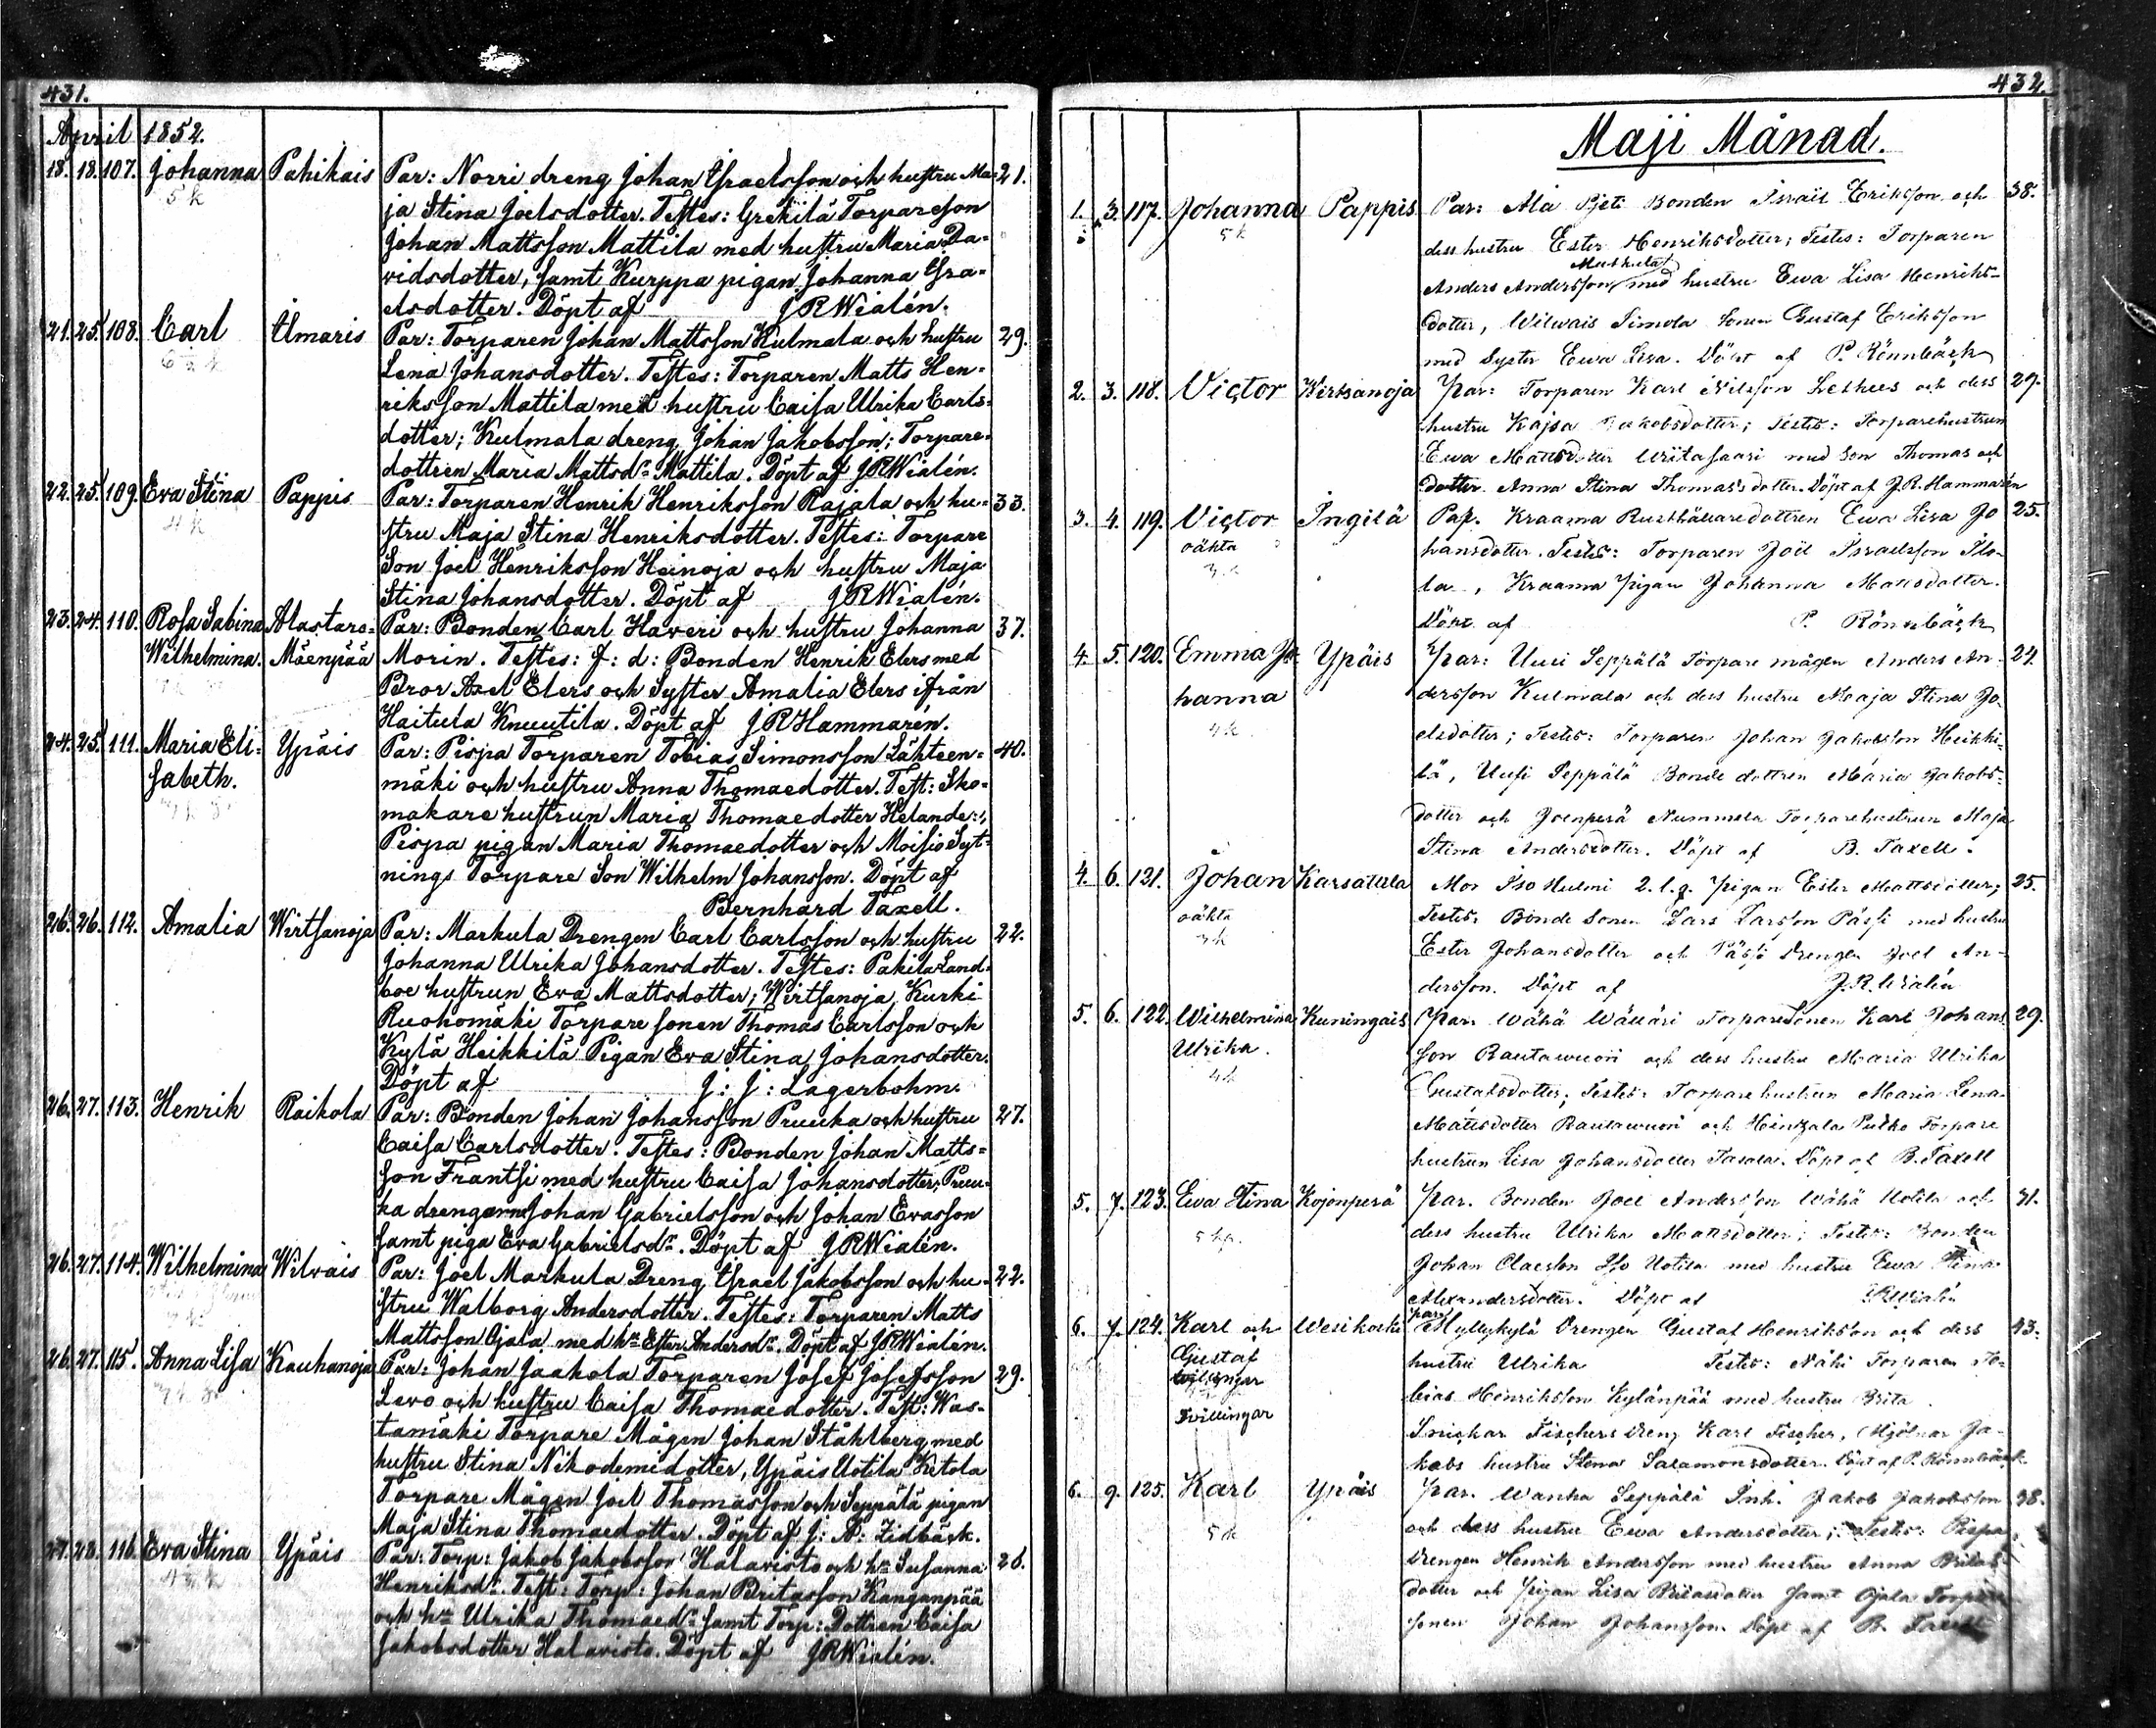 431.
April 1852.
18. 18. 107. Johanna Pahikais Par: Norri dreng Johan Israelsson och hustru Ma- 21.
5 k ja Stina Joelsdotter. Testes: Grekilä Torpareson
Johan Mattsson Mattila med hustru Maria Da-
vidsdotter, samt Kurppa pigan Johanna Isra-
elsdotter. Döpt af JRWialén.
21. 25. 108. Carl Ilmaris Par: Torparen Johan Mattsson Kulmala och hustru 29.
Lena Johansdotter. Testes: Torparen Matts Hen-
riksson Mattila med hustru Caisa Ulrika Carls-
dotter; Kulmala dreng Johan Jakobsson; Torpare-
dottren Maria Mattsdr Mattila. Döpt af JRWialén.
22. 25. 109. Eva Stina Pappis Par: Torparen Henrik Henriksson Rajala och hu- 33.
4 k stru Maja Stina Henriksdotter. Testes: Torpare
Son Joel Henriksson Heinoja och hustru Maja
Stina Johansdotter. Döpt af JRWialén.
23. 24. 110. Rosa Sabina Alastaro- Par: Bonden Carl Haveri och hustru Johanna 37.
Wilhelmina. Mäenpää Morin. Testes: f: d: Bonden Henrik Elers med
Bror Axel Elers och Syster Amalia Elers ifrån
Haitula Knuutila. Döpt af JRHammarén.
24. 25. 111. Maria Eli- Ypäis Par: Pispa Torparen Tobias Simonsson Lähteen- 40.
sabeth. mäki och hustru Anna Thomaedotter. Test: Sko-
makare hustrun Maria Thomaedotter Helander,
Pispa pigan Maria Thomaedotter och Moisio Syt-
nings Torpare Son Wilhelm Johansson. Döpt af
Bernhard Taxell.
26. 26. 112. Amalia Wirtsanoja Par: Markula Drengen Carl Carlsson och hustru 22.
Johanna Ulrika Johansdotter. Testes: Pakila Land-
boe hustrun Eva Mattsdotter; Wirtsanoja Kurki
Ruohomäki Torpare sonen Thomas Carlsson och
Kylä Heikkilä Pigan Eva Stina Johansdotter.
Döpt af J: J: Lagerbohm.
26. 27. 113. Henrik Raikola Par: Bonden Johan Johansson Pruuka och hustru 27.
Caisa Carlsdotter. Testes: Bonden Johan Matts-
son Frantsi med hustru Caisa Johansdotter; Pruu-
ka drengarne Johan Gabrielsson och Johan Evasson
samt piga Eva Gabrielsdr. Döpt af JRWialén.
26. 27. 114. Wilhelmina Wilvais Par: Joel Markula Dreng Israel Jakobsson och hu- 22.
stru Walborg Andersdotter. Testes: Torparen Matts
Mattsson Ojala med hu Ester Andersdr. Döpt af JRWialén.
26. 27. 115. Anna Lisa Kauhanoja Par: Johan Jaakola Torparen Josef Josefsson 29.
Levo och hustru Caisa Thomaedotter. Test: Was-
tamäki Torpare Mågen Johan Ståhlberg med
hustru Stina Nikodemidotter, Ypäis Uotila Ketola
Torpare Mågen Joel Thomasson och Seppälä pigan
Maja Stina Thomaedotter. Döpt af J: A: Lidbäck.
27. 28. 116. Eva Stina Ypäis Par: Torp: Jakob Jakobsson Halavisto och hu Susanna 26.
Henriksdr. Test: Torp: Johan Britasson Kanganpää
och hu Ulrika Thomaedr samt Torp: Dottren Caisa
Jakobsdotter Halavisto. Döpt af JRWialén.
432.
Maji Månad.
1. 3. 117. Johanna Pappis Par: Ala Pjeti Bonden Israël Eriksson och 38.
5 k dess hustru Ester Henriksdotter; Testes: Torparen
Anders Andersson med hustru Ewa Lisa Henriks-
dotter, Wilwais Timola Sonen Gustaf Eriksson
med Syster Ewa Lisa. Döpt af P. Rönnbäck
2. 3. 118. Victor Wirtsanoja Par: Torparen Karl Nilsson och dess 29.
hustru Kajsa Jakobsdotter; Testes: Torparehustrun
Ewa Mattsdotter med Son Thomas och
dotter Anna Stina Thomasdotter. Döpt af J.R. Hammarén
3. 4. 119. Victor Ingilä Par. Kraama Rusthållaredottren Ewa Lisa Jo 25.
oäkta hansdotter. Testes: Torparen Joël Israelsson Ilo-
la, Kraama Pigan Johanna Mattsdotter.
Döpt af P. Rönnbäck
4. 5. 120. Emma Jo- Ypäis Par: Uusi Seppälä Torpare mågen Anders An- 24.
hanna dersson Kulmala och dess hustru Maaja Stina Jo-
4k elsdotter; Testes: Torparen Johan Jakobsson Heikki-
lä, Uusi Seppälä Bonde dottren Maria Jakobs-
dotter och Joenperä Nummela Torparehustrun Maja
Stina Andersdotter. Döpt af B. Taxell.
4. 6. 121. Johan Karsattila Mor Iso Hulmi Pigan Ester Mattsdotter; 25.
oäkta Testes: Bonde Sonen Lars Larsson Pässi med hustru
3k Ester Johansdotter och Pässi Drengen Joel An-
dersson. Döpt af J.R. Wialén
5. 6. 122. Wilhelmina Kuningais Par: Wähä Wällari Torparesonen Karl Johans- 29.
Ulrika. son Rautawuori och dess hustru Maaria Ulrika
4k Gustafsdotter; Testes: Torpare hustrun Maria Lena
Mattsdotter Rautawuori och Heinzala Torpare
hustrun Lisa Johansdotter Tasala. Döpt af B. Taxell
5. 7. 123. Ewa Stina Kojonperä Par. Bonden Joel Andersson Wähä Uotila och 31.
dess hustru Ulrika Mattsdotter; Testes: Bonden
Johan Claesson Iso Uotila med hustru Ewa Stina
Alexandersdotter. Döpt af JRWialén
6. 7. 124. Karl och Wesikoski Par: Myllykylä Drengen Gustaf Henriksson och dess 43.
Gustaf hustru Ulrika Testes: Näki Torparen To-
bias Henriksson Kylänpää med hustru Brita
Tvillingar Snickar Fischers dreng Karl Fischer, Mjölnar Ja-
kobs hustru Stena Salamonsdotter. Döpt af P. Rönnbäck
6. 9. 125. Karl Ypäis Par. Wanha Seppälä Inh. Jakob Jakobsson 38.
5 k och dess hustru Ewa Andersdotter; Testes: Pispa
Drengen Henrik Andersson med hustru Anna Britas-
dotter och Pigan Lisa Britasdotter samt Ojala Torpare
sonen Johan Johansson. Döpt af B. Taxell